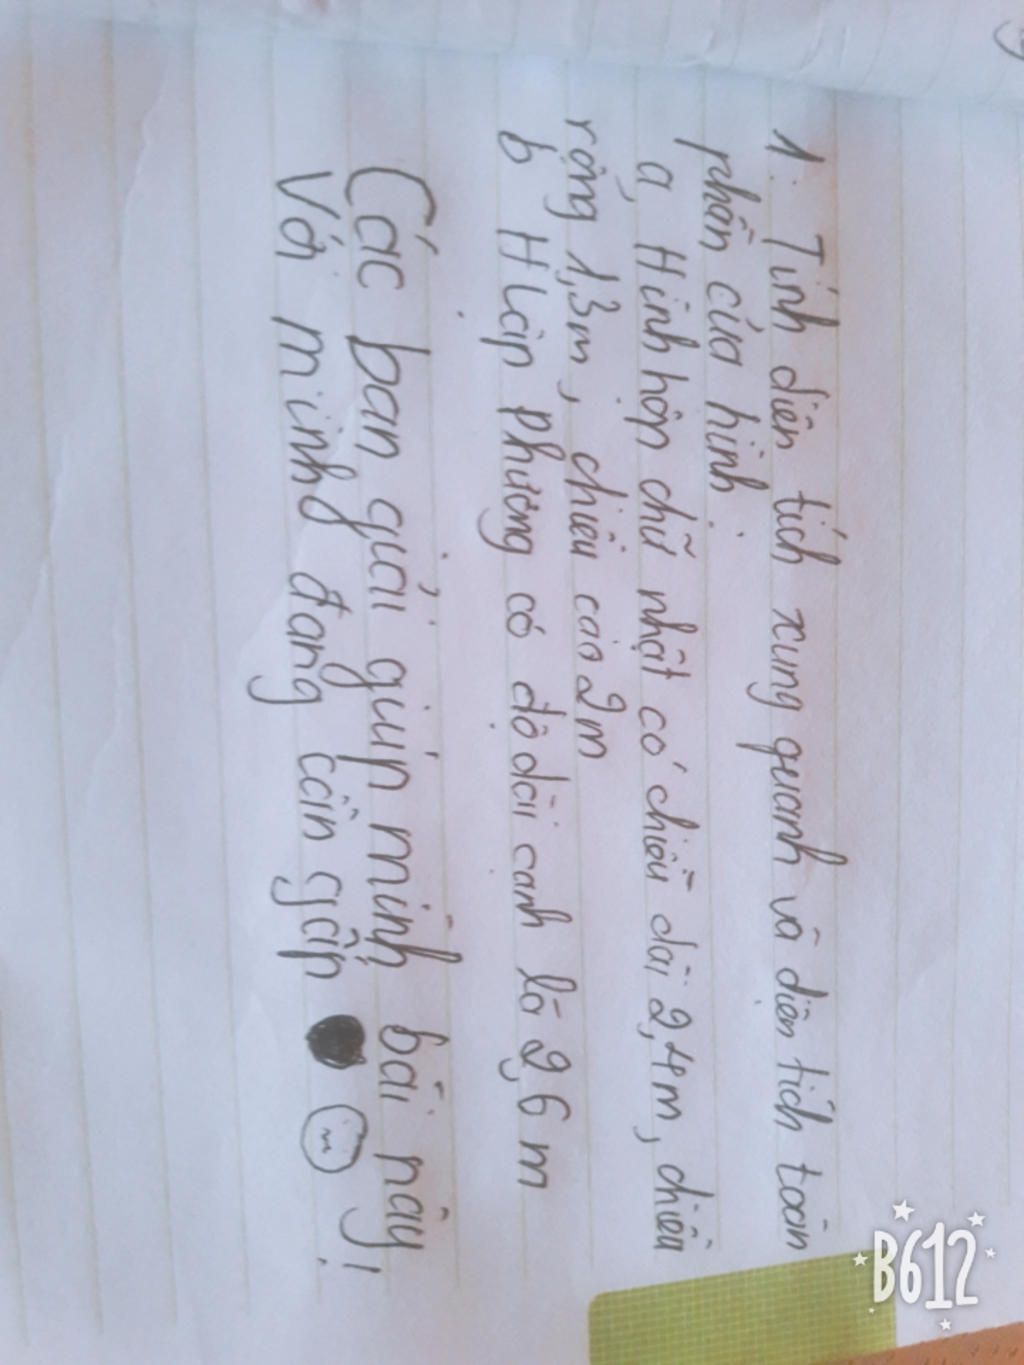 1. Tính diện tích xung quanh và diện tích toàn
phần của hình.
a, Hình hộp chữ nhật có chiều dài 2,4m, chiều
rộng 1,3m, chiều cao 2m
b H lập phương có độ dài cạnh là 2,6 m
Các bạn giải giúp mình bài này!
Với mình đang cần gấp !
B612